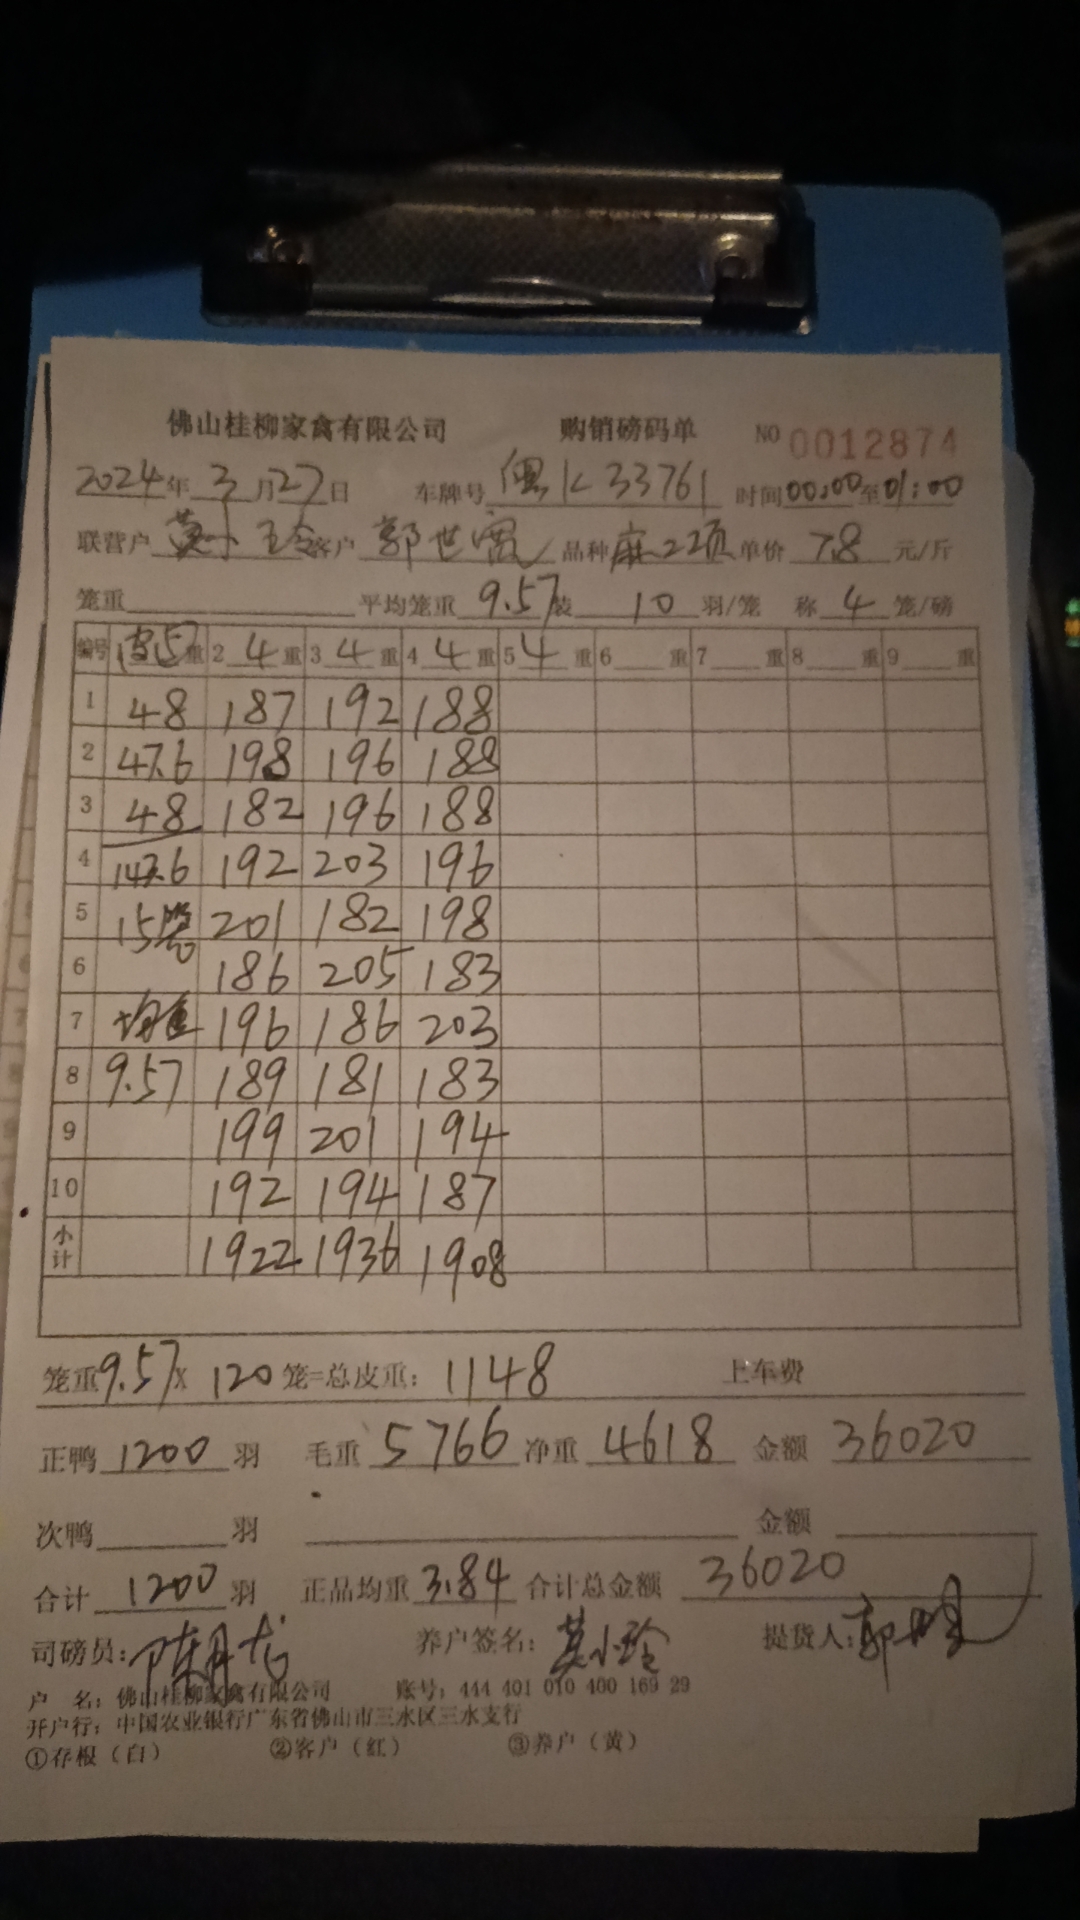 佛山桂柳家禽有限公司 购销磅码单 NO 0012874
2024年3月27日 车牌号 K33761 时间00:00至01:00
联营户 莫小玲 客户 郭世 品种 麻二项 单价 7.8 元/斤
笼重 平均笼重 9.57 装 10 羽/笼 称 4 笼/磅
编号 重 2 4 重 3 4 重 4 4 重 5 4 重 6 重 7 重 8 重 9 重
1 48 187 192 188
2 47.6 198 196 188
3 48 182 196 188
4 143.6 192 203 196
5 15笼 201 182 198
6 186 205 183
7 均重 196 186 203
8 9.57 189 181 183
9 199 201 194
10 192 194 187
小计 1922 1936 1908
笼重9.57X 120 笼=总皮重: 1148 上车费
正鸭 1200 羽 毛重 5766 净重 4618 金额 36020
次鸭 羽 金额
合计 1200 羽 正品均重 3.84 合计总金额 36020
司磅员: 养户签名: 莫小玲 提货人: 郭
户 名: 佛山桂柳家禽有限公司 账号: 444 401 010 400 169 29
开户行: 中国农业银行广东省佛山市三水区三水支行
①存根(白) ②客户(红) ③养户(黄)